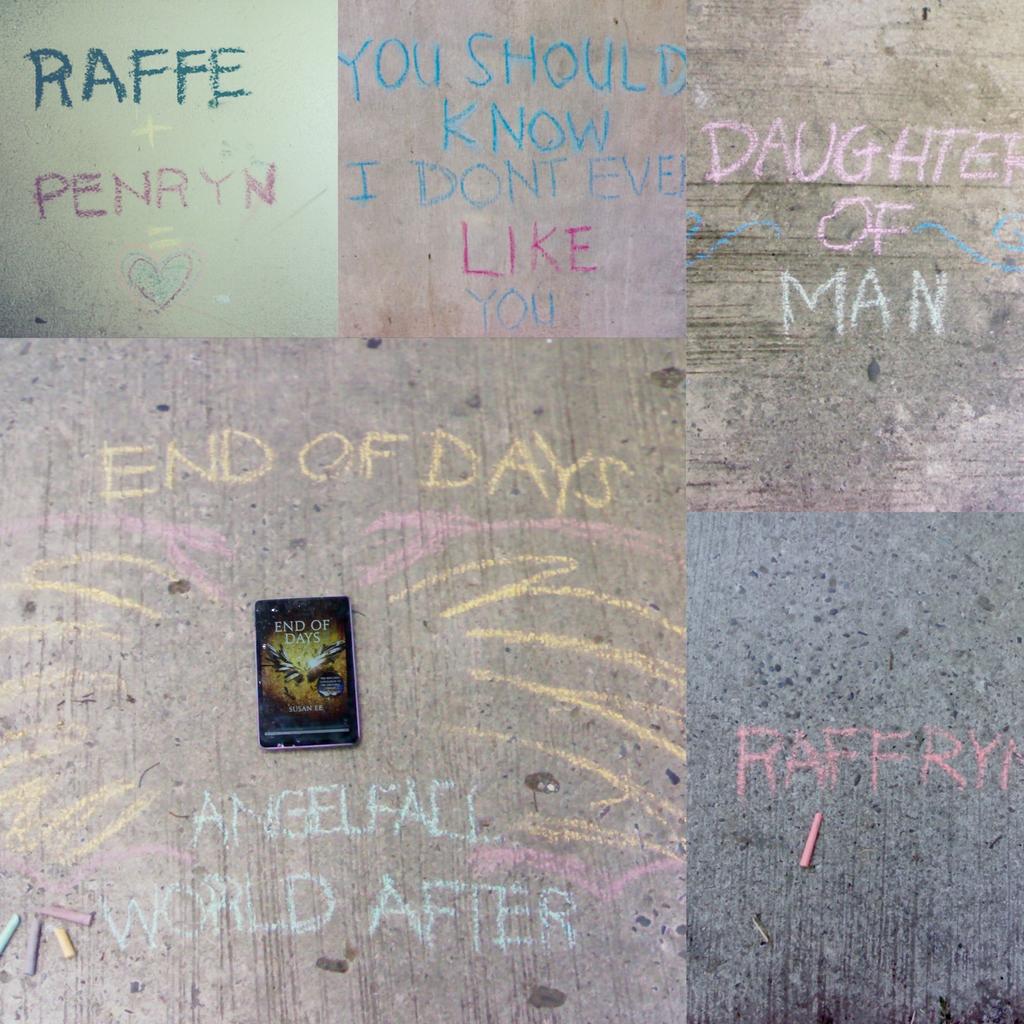 RAFFE
+
PENRYN
=
YOU SHOULD
KNOW
I DONT EVE
LIKE
YOU
DAUGHTER
OF
MAN
END OF DAYS
END OF
DAYS
SUSAN EE
ANGELFALL
WORLD AFTER
RAFFRYN